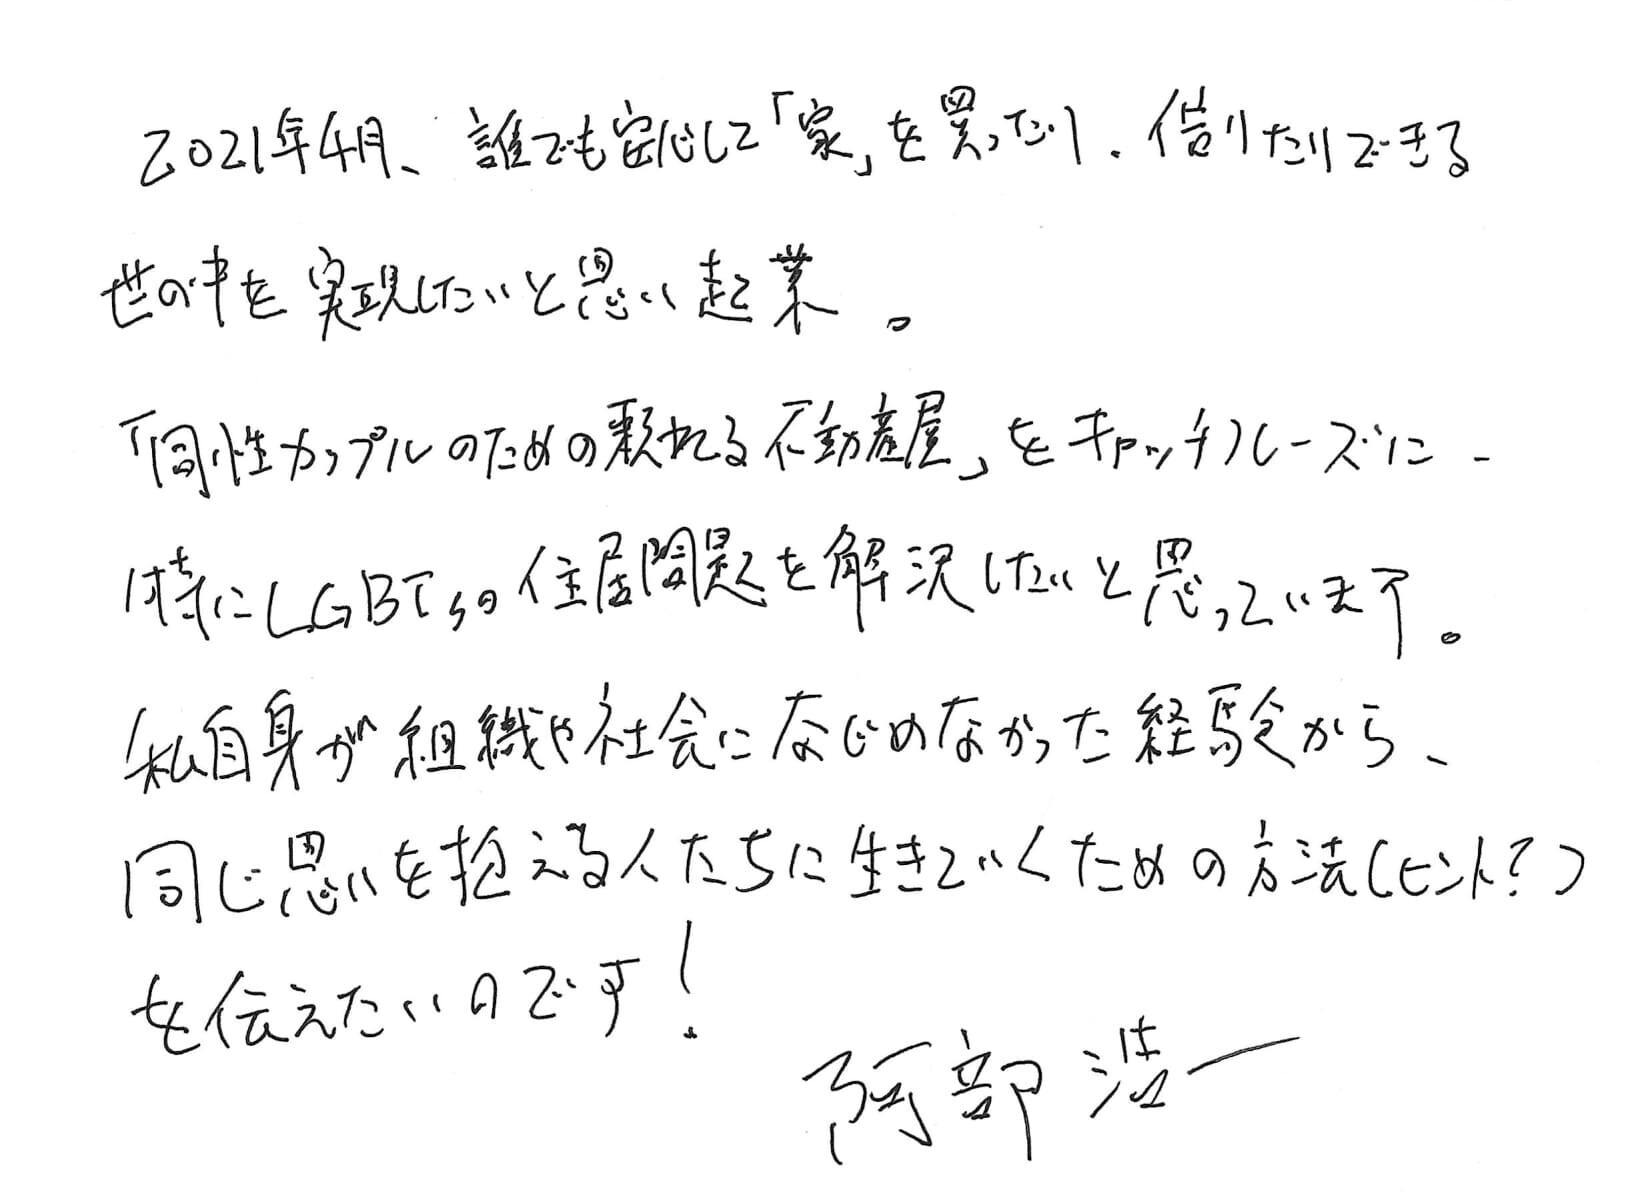 2021年4月、誰でも安心して「家」を買ったり、借りたりできる
世の中を実現したいと思い起業。
「同性カップルのための頼れる不動産屋」をキャッチフレーズに、
特にLGBTsの住居問題を解決したいと思っています。
私自身が組織や社会になじめなかった経験から、
同じ思いを抱える人たちに生きていくための方法(ヒント?)
を伝えたいのです!
阿部浩一